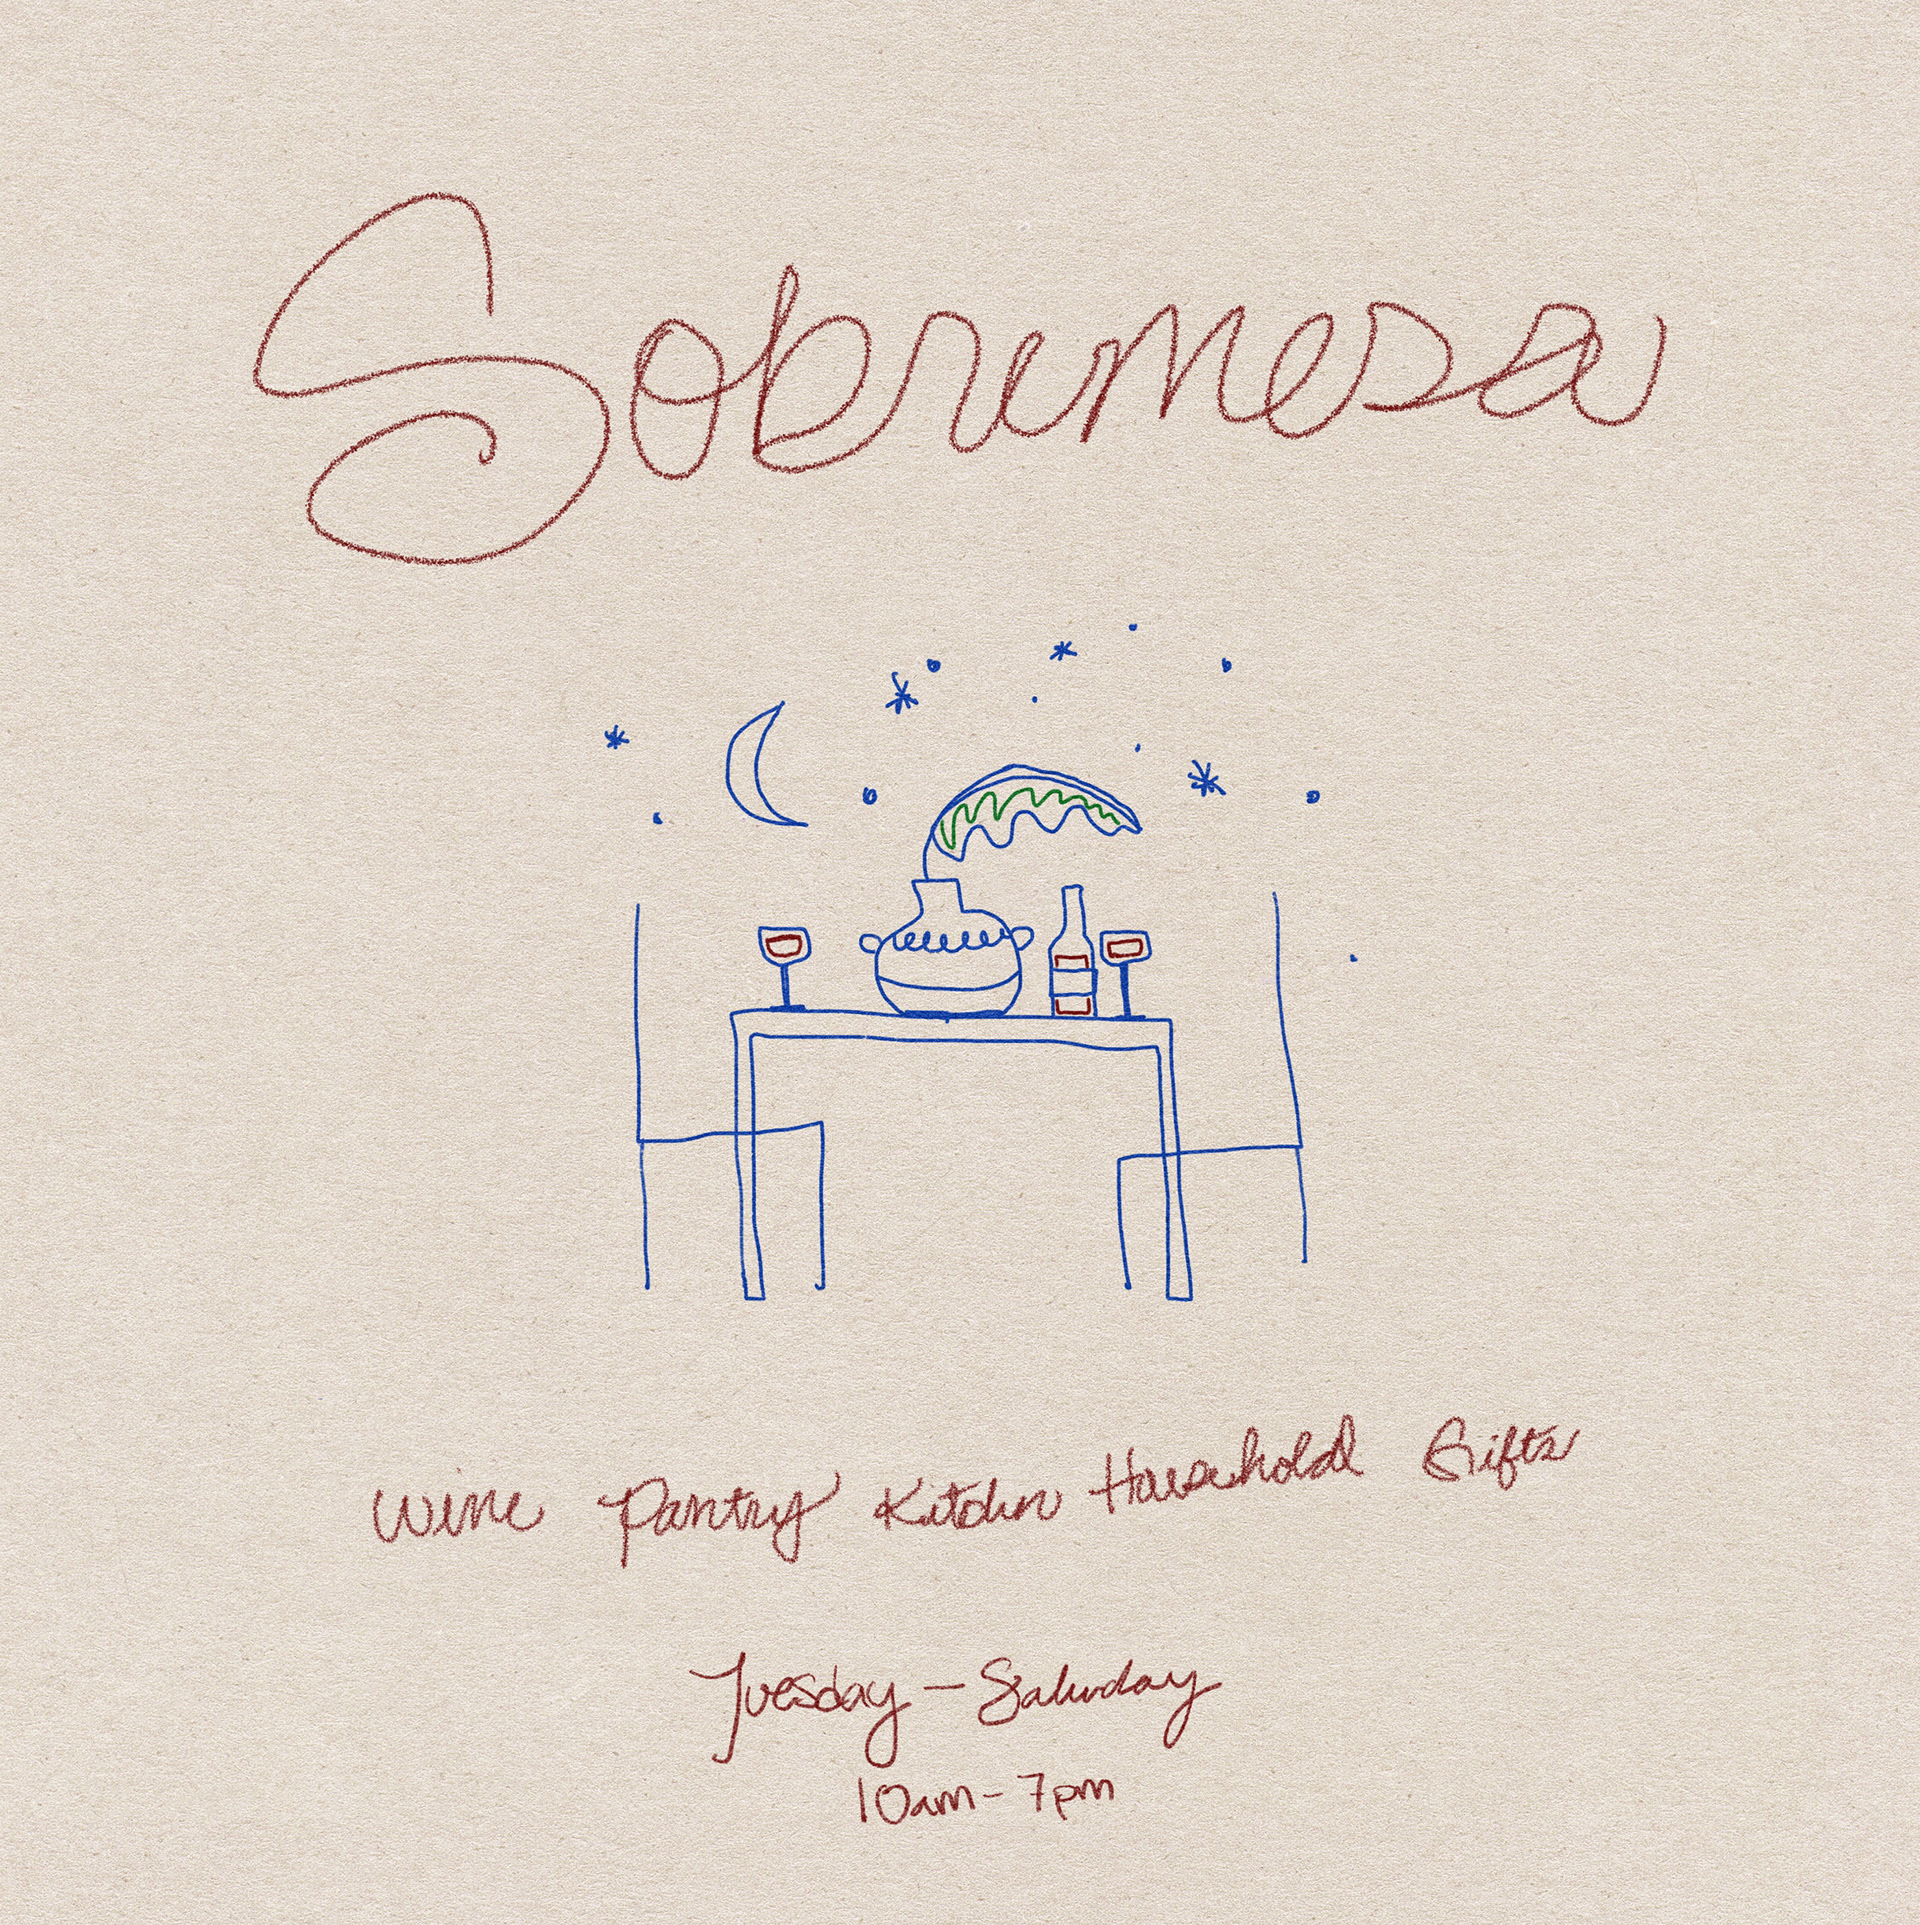 Sobremesa
Wine Pantry Kitchen Household Gifts
Tuesday – Saturday
10am - 7pm